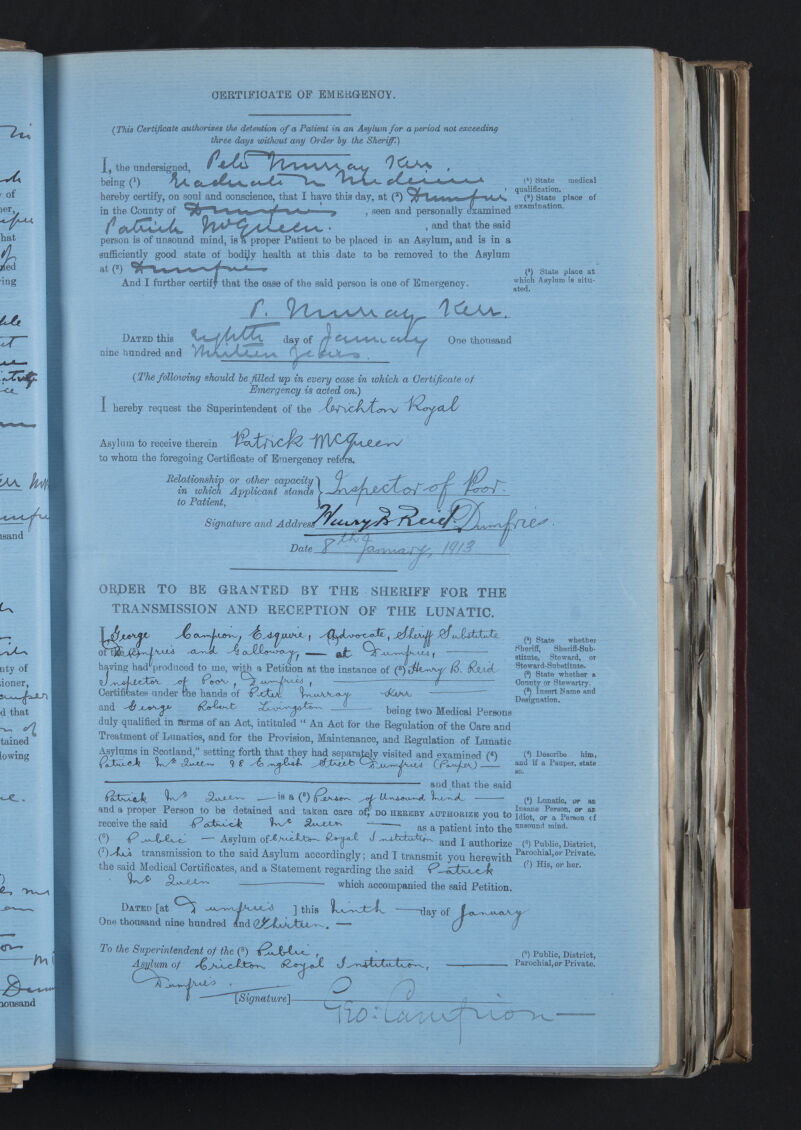 CERTIFICATE OF EMERGENCY.
(This Certificate authorises the detention of a Patient in an Asylum for a period not exceeding
three days without any Order by the Sheriff.)
I, the undersigned, Peter Murray Kerr
being (¹) Graduate in Medicine
hereby certify, on soul and conscience, that I have this day, at (²) Dumfries
in the County of Dumfries, seen and personally examined
Patrick McQueen. , and that the said
person is of unsound mind, is a proper Patient to be placed in an Asylum, and is in a
sufficiently good state of bodily health at this date to be removed to the Asylum
at (³) Dumfries
And I further certify that the case of the said person is one of Emergency.
(¹) State medical
qualification.
(²) State place of
examination.
(³) State place at
which Asylum is situ-
ated.
P. Murray Kerr.
DATED this eighth day of January One thousand
nine hundred and thirteen years.
(The following should be filled up in every case in which a Certificate of
Emergency is acted on.)
I hereby request the Superintendent of the Crichton Royal
Asylum to receive therein Patrick McQueen
to whom the foregoing Certificate of Emergency refers.
Relationship or other capacity
in which Applicant stands
to Patient, Inspector of Poor.
Signature and Address Henry B Reid Dumfries.
Date 8th January, 1913
ORDER TO BE GRANTED BY THE SHERIFF FOR THE
TRANSMISSION AND RECEPTION OF THE LUNATIC.
I, George Campion, Esquire, Advocate, Sheriff Substitute
of Dumfries and Galloway, — at Dumfries, —
having had produced to me, with a Petition at the instance of (²) Henry B. Reid
Inspector of Poor, Dumfries,
Certificates under the hands of Peter Murray Kerr
and George Robert Livingston being two Medical Persons
duly qualified in terms of an Act, intituled "An Act for the Regulation of the Care and
Treatment of Lunatics, and for the Provision, Maintenance, and Regulation of Lunatic
Asylums in Scotland," setting forth that they had separately visited and examined (⁴)
Patrick McQueen 98 English Street Dumfries (Pauper) —
and that the said
Patrick McQueen — is a (⁵) Person of Unsound Mind —
and a proper Person to be detained and taken care of, DO HEREBY AUTHORIZE you to
receive the said Patrick McQueen — as a patient into the
(⁶) Public — Asylum of Crichton Royal Institution and I authorize
(⁷) his transmission to the said Asylum accordingly; and I transmit you herewith
the said Medical Certificates, and a Statement regarding the said Patrick
McQueen which accompanied the said Petition.
(¹) State whether
Sheriff, Sheriff-Sub-
stitute, Steward, or
Steward-Substitute.
(²) State whether a
County or Stewartry.
(³) Insert Name and
Designation.
(⁴) Describe him,
and if a Pauper, state
so.
(⁵) Lunatic, or an
Insane Person, or an
Idiot, or a Person of
unsound mind.
(⁶) Public, District,
Parochial, or Private.
(⁷) His, or her.
DATED [at Dumfries ] this Ninth — day of January
One thousand nine hundred and Thirteen. —
To the Superintendent of the (⁸) Public,
Asylum of Crichton Royal Institution,
Dumfries.
(⁸) Public, District,
Parochial, or Private.
[Signature] Geo: Campion